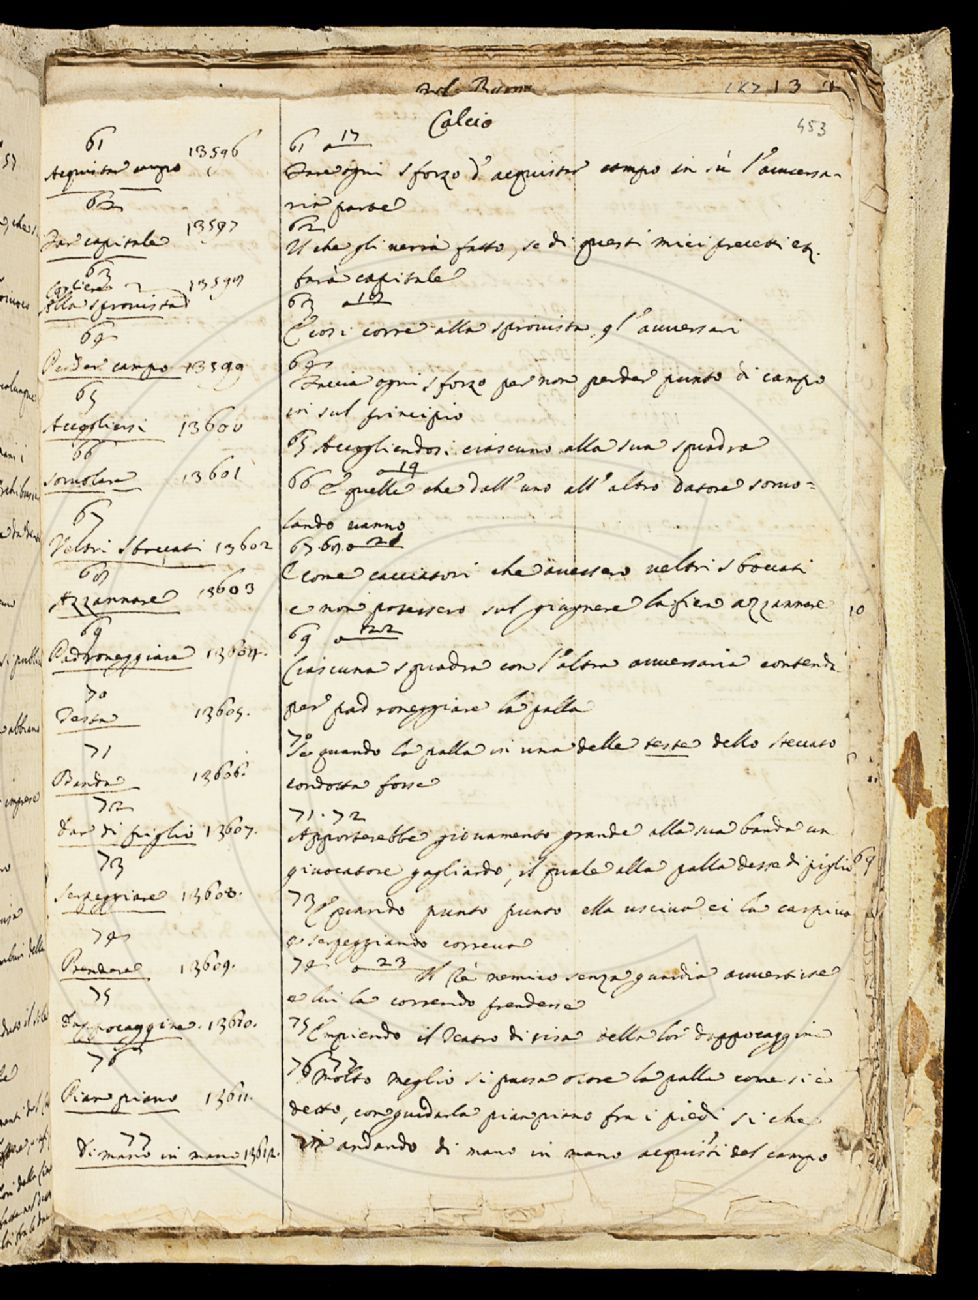 Calcio
453
61
Acquistar campo 13596
62
Far capitale 13597
63
Cogliere
Alla sprovista 13598
64
Perder campo 13599
65
Accogliersi 13600
66
sorvolare 13601
67
Veltri sboccati 13602
68
Azzannare 13603
69
Padroneggiare 13604.
70
Testa 13605.
71
Banda 13606.
72
Dar di piglio 13607.
73
Serpeggiare 13608.
74
Prendere 13609.
75
Dappocaggine 13610.
76
Pian piano 13611.
77
Di mano in mano 13612.
61 a 17
Fare ogni sforzo d'acquistar campo in sù l'avversa-
ria parte
62
Il che gli verrà fatto, se di questi miei precetti
farà capitale
63 a 18
E così corre alla sprovista gl'avversari
64
Faccia ogni sforzo per non perder punto di campo
in sul principio
65 Accogliendosi ciascuno alla sua squadra
66 a 19
E quelle che dall'uno all'altro Datore sorvo-
lando vanno
67 68 a 21
E come cacciatori che avessero veltri sboccati
e non potessero sul giugnere la fiera azzannare 10
69 a 22
Ciascuna squadra con l'altra avversaria contenda
per padroneggiare la palla
70
Se quando la palla in una delle teste dello steccato
condotta fosse
71. 72
Apporterebbe giovamento grande alla sua banda un
giuocatore gagliardo, il quale alla palla desse di piglio
73 E quando punto punto ella usciva ei la carpiva
e serpeggiando correva
74 a 23 Il Rè nemico senza guardia avvertisse
e lui la correndo prendesse
75 Empiendo il Teatro di risa della lor dappocaggine
76 77
Molto meglio si passa oltre la palla come si è
detto, con guidarla pian piano fra i piedi si che
andando di mano in mano acquisti del campo